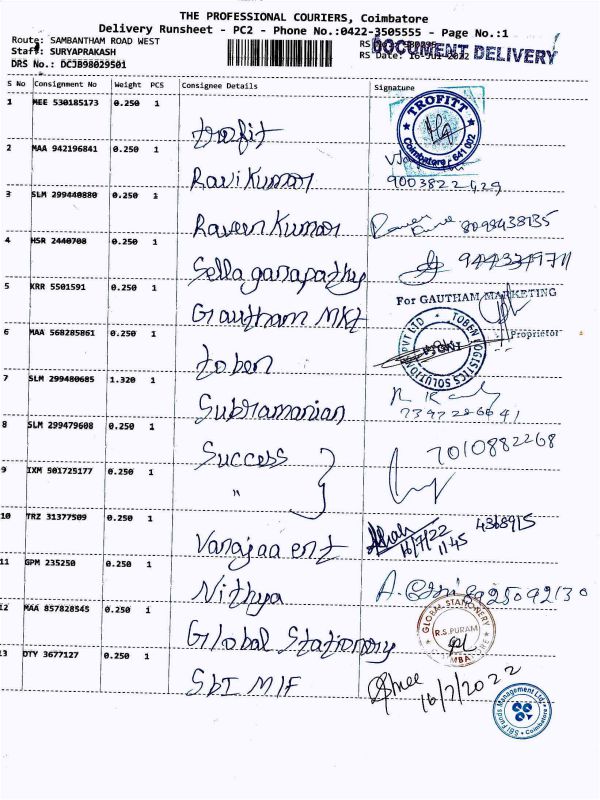 THE PROFESSIONAL COURIERS, Coimbatore
Delivery Runsheet - PC2 - Phone No.:0422-3505555 - Page No.:1
Route: SAMBANTHAM ROAD WEST
DOCUMENT DELIVERY
Staff: SURYAPRAKASH
RS Date: 16-Jul-2022
DRS No.: DCJB98029501
S No Consignment No Weight PCS Consignee Details Signature
1 MEE 530185173 0.250 1 trofit
TROFITT Coimbatore - 641 002
2 MAA 942196841 0.250 1 Ravi Kumar 9003822429
3 SLM 299440880 0.250 1 Raveen Kumar 8098438135
4 HSR 2440708 0.250 1 Sella ganapathy
5 KRR 5501591 0.250 1 Gautham Mkt For GAUTHAM MARKETING
Proprietor
6 MAA 568285861 0.250 1 toben
TOBEN LOGISTICS SOLUTIONS PVT LTD
7 SLM 299480685 1.320 1 Subramanian
8 SLM 299479608 0.250 1 Success 7010882268
9 IXM 501725177 0.250 1 "
10 TRZ 31377509 0.250 1 Vanajaa ent 16/7/22 11:45
11 GPM 235250 0.250 1 Nithya A.
12 MAA 857828545 0.250 1 Global Stationory
GLOBAL STATIONERY R.S.PURAM
13 DTY 3677127 0.250 1 SbI M/F 16/7/2022
SBI Funds Management Ltd. Coimbatore